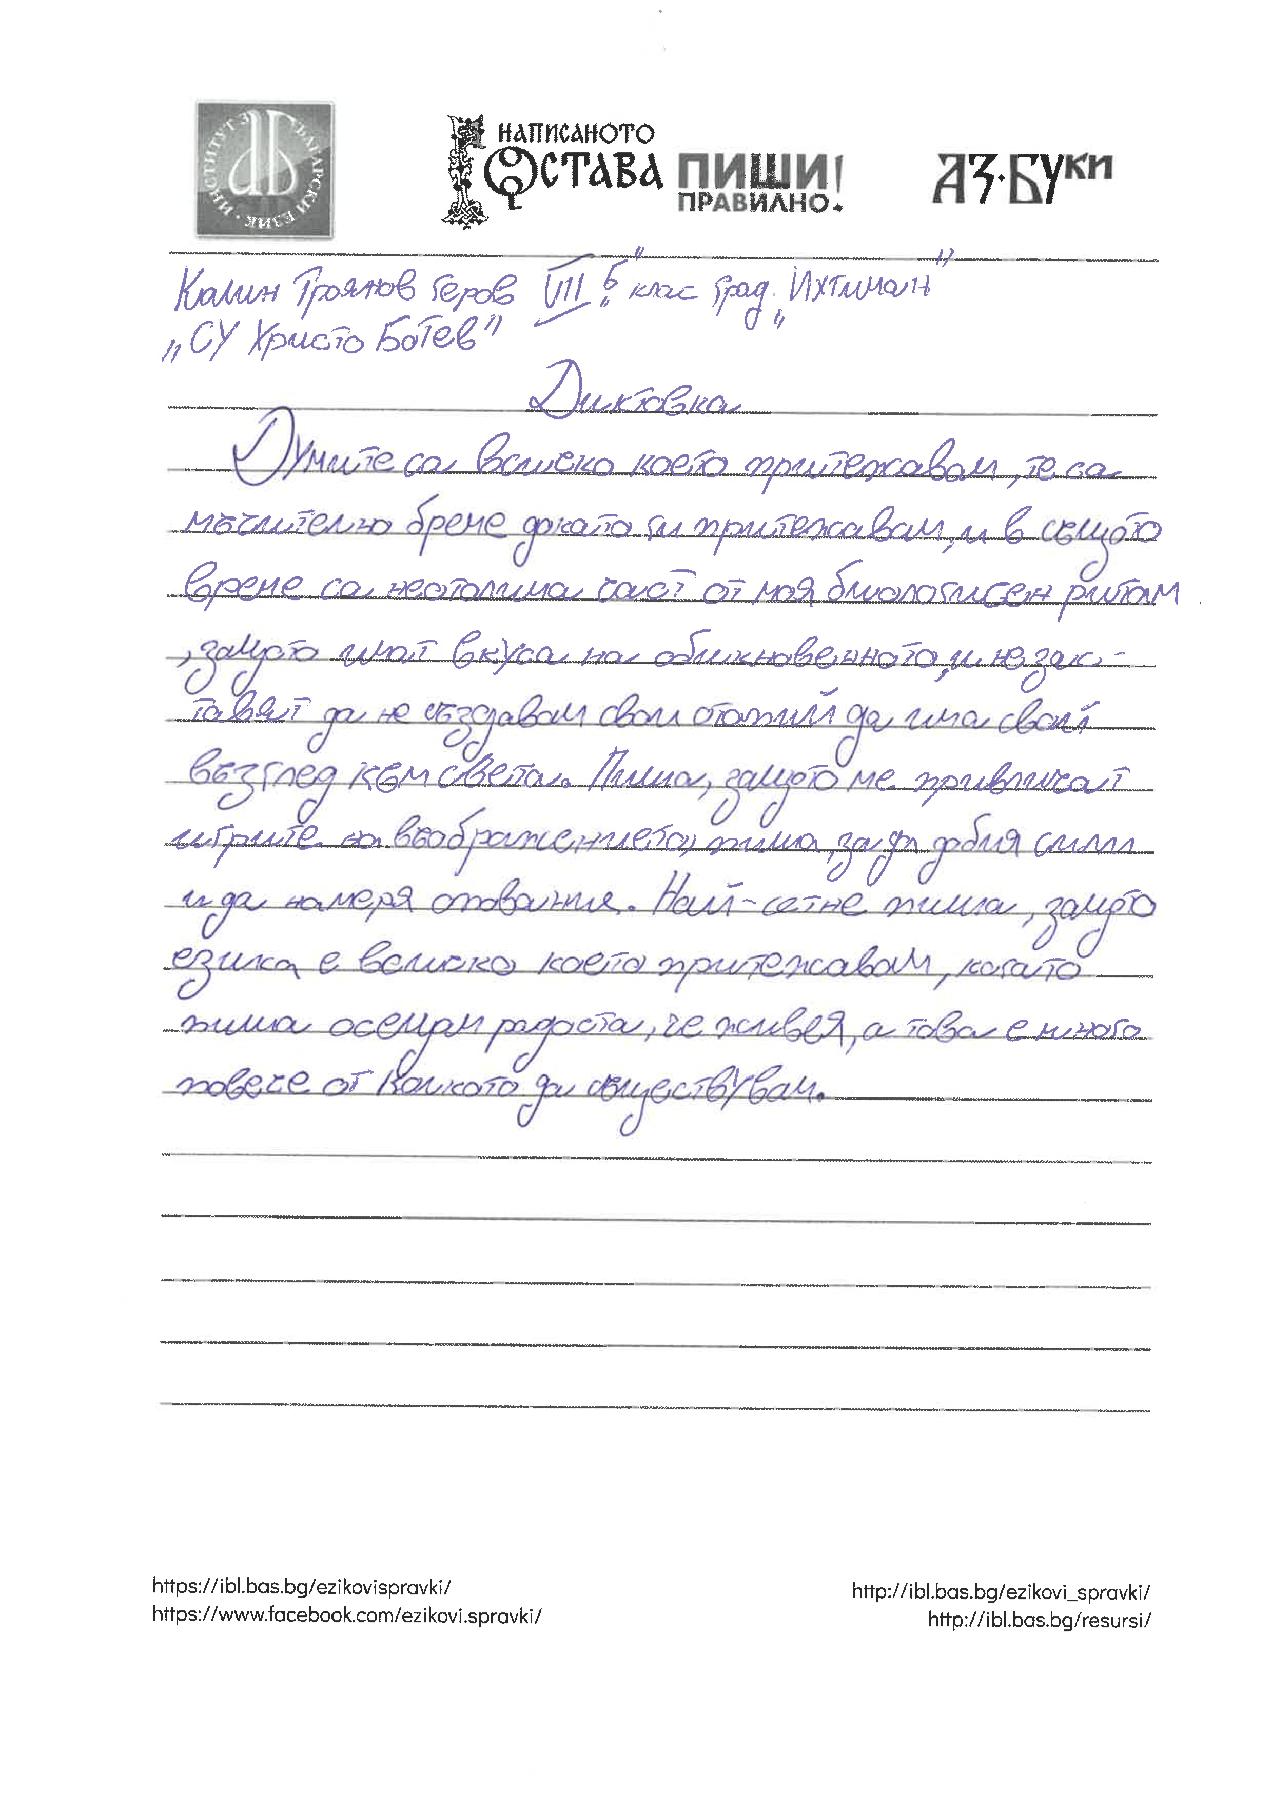 ИНСТИТУТ ЗА БЪЛГАРСКИ ЕЗИК
НАПИСАНОТО ОСТАВА ПИШИ ПРАВИЛНО! АЗ·БУКИ
Калин Троянов Геров VII „б" клас град „Ихтиман"
„СУ Христо Ботев"
Диктовка
Думите са всичко което притежавам, те са
мъчително бреме докато ги притежавам, и в същото
време са неотолима част от моя биологичен ритам
, защото имат вкуса на обикновенното, и не зас-
тавят да не създавам свои опотий да има свой
възглед към света. Пиша, защото ме привличат
игрите на въображението, пиша, за да добия сили
и да намеря упование. Най-сетне пиша, защото
езика е всичко което притежавам, когато
пиша осещам радоста, че живея, а това е много
повече от колкото да съществувам.
https://ibl.bas.bg/ezikovispravki/ http://ibl.bas.bg/ezikovi_spravki/
https://www.facebook.com/ezikovi.spravki/ http://ibl.bas.bg/resursi/